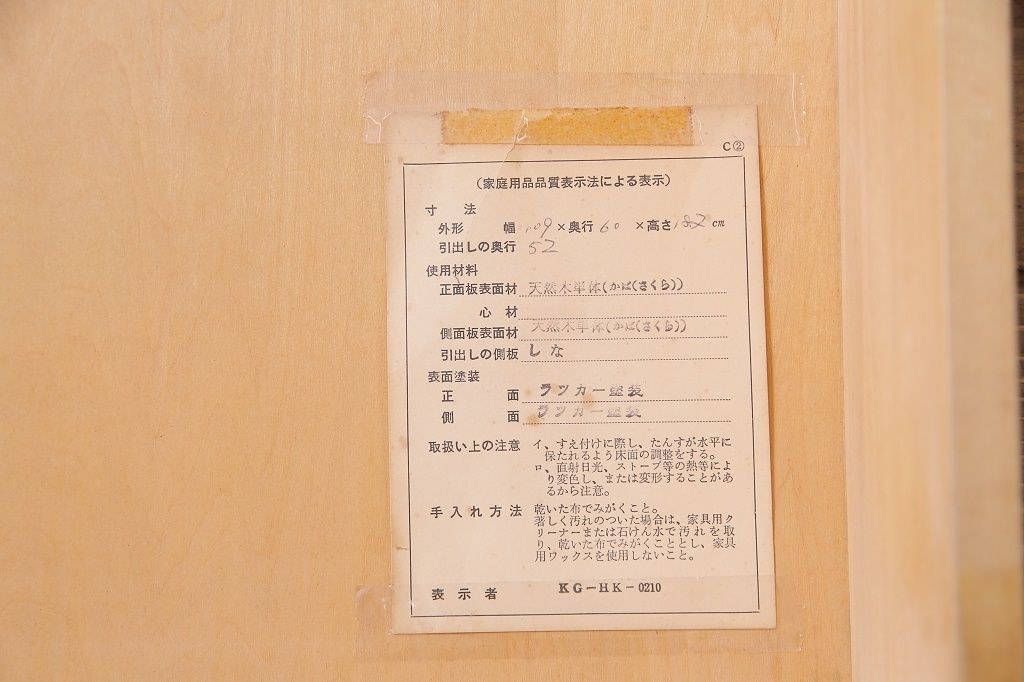 C②
(家庭用品品質表示法による表示)
寸 法
外形 幅 109 ×奥行 60 ×高さ 182 cm
引出しの奥行 52
使用材料
正面板表面材 天然木単体(かば(さくら))
心 材
側面板表面材 天然木単体(かば(さくら))
引出しの側板 しな
表面塗装
正 面 ラッカー塗装
側 面 ラッカー塗装
取扱い上の注意 イ、すえ付けに際し、たんすが水平に
保たれるよう床面の調整をする。
ロ、直射日光、ストーブ等の熱等によ
り変色し、または変形することがあ
るから注意。
手入れ方法 乾いた布でみがくこと。
著しく汚れのついた場合は、家具用ク
リーナーまたは石けん水で汚れを取
り、乾いた布でみがくこととし、家具
用ワックスを使用しないこと。
表 示 者 KG-HK-0210